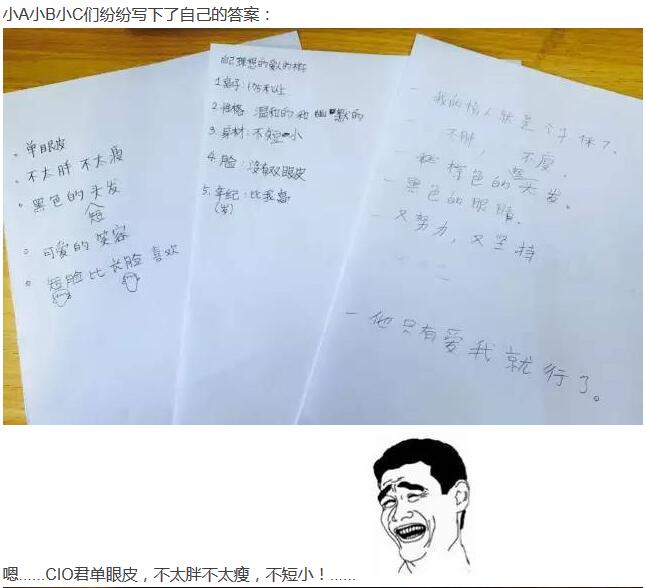 小A小B小C们纷纷写下了自己的答案：
。单眼皮
。不太胖 不太瘦
。黑色的头发
短
。可爱的笑容
。短脸比长脸喜欢
自己理想的爱人的样子
1. 高子：175米以上
2. 性格 温和的和幽默的
3. 身材：不短小
4. 脸：没有双眼皮
5. 年纪：比我高
(岁)
- 我的情人就是个子保了.
- 不胖， 不瘦.
- 棕色的头发。
- 黑色的眼睛.
- 又努力，又坚持
- 他只有爱我就行了。
嗯......CIO君单眼皮，不太胖不太瘦，不短小！......